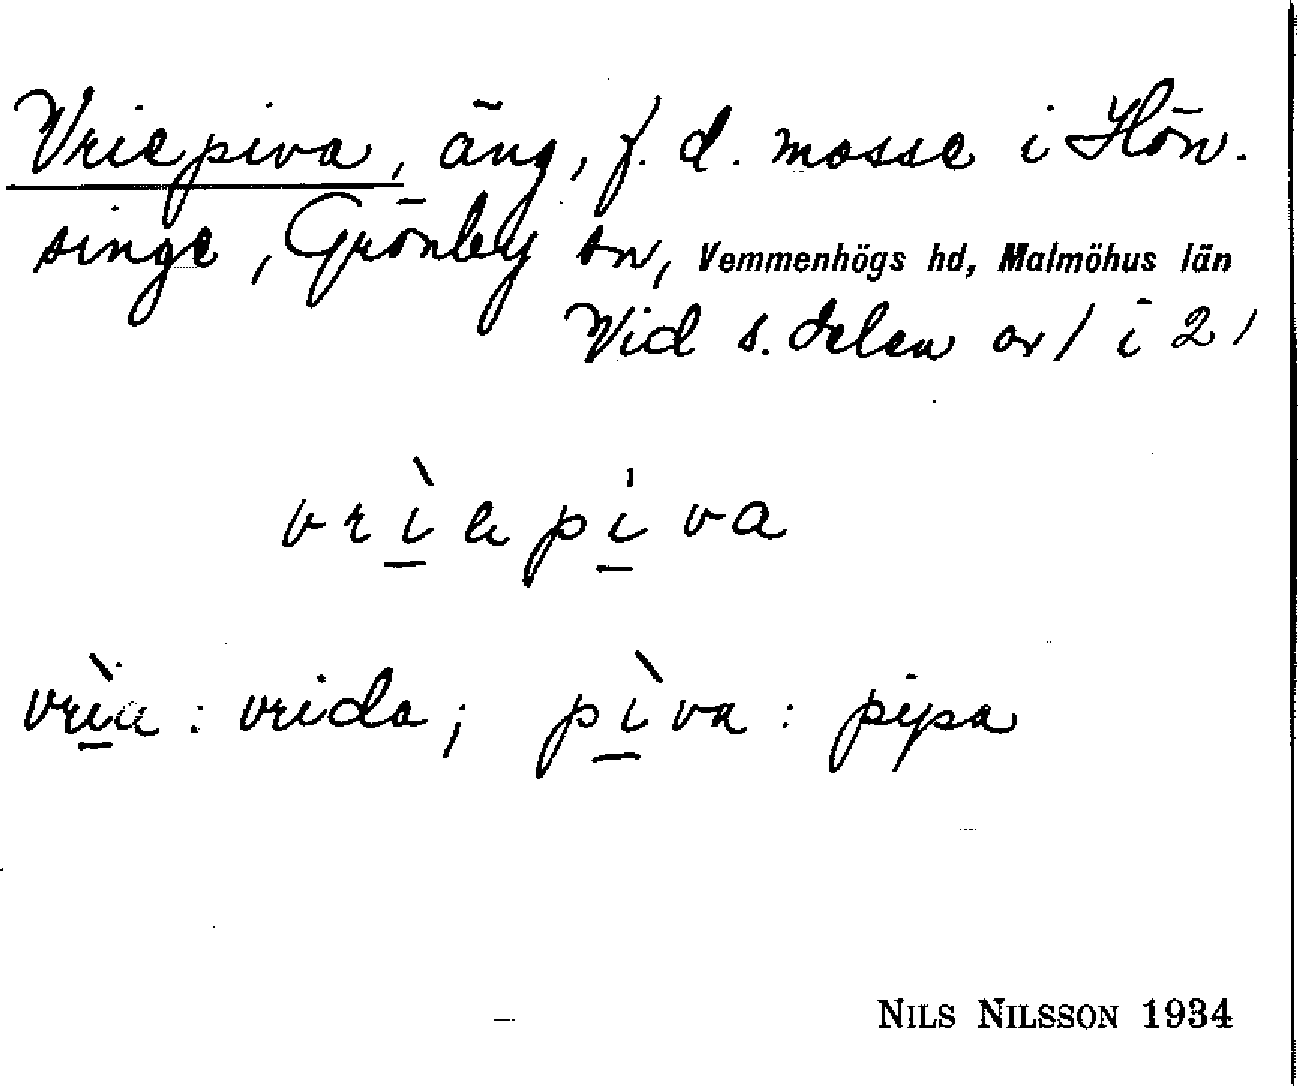 Vriepiva, äng, f. d. mosse i Hön-
singe, Grönby sn, Vemmenhögs hd, Malmöhus län
Vid s. delen av 1 i 21
vrìepíva
vrìa : vrida; pìva : pipa
NILS NILSSON 1934